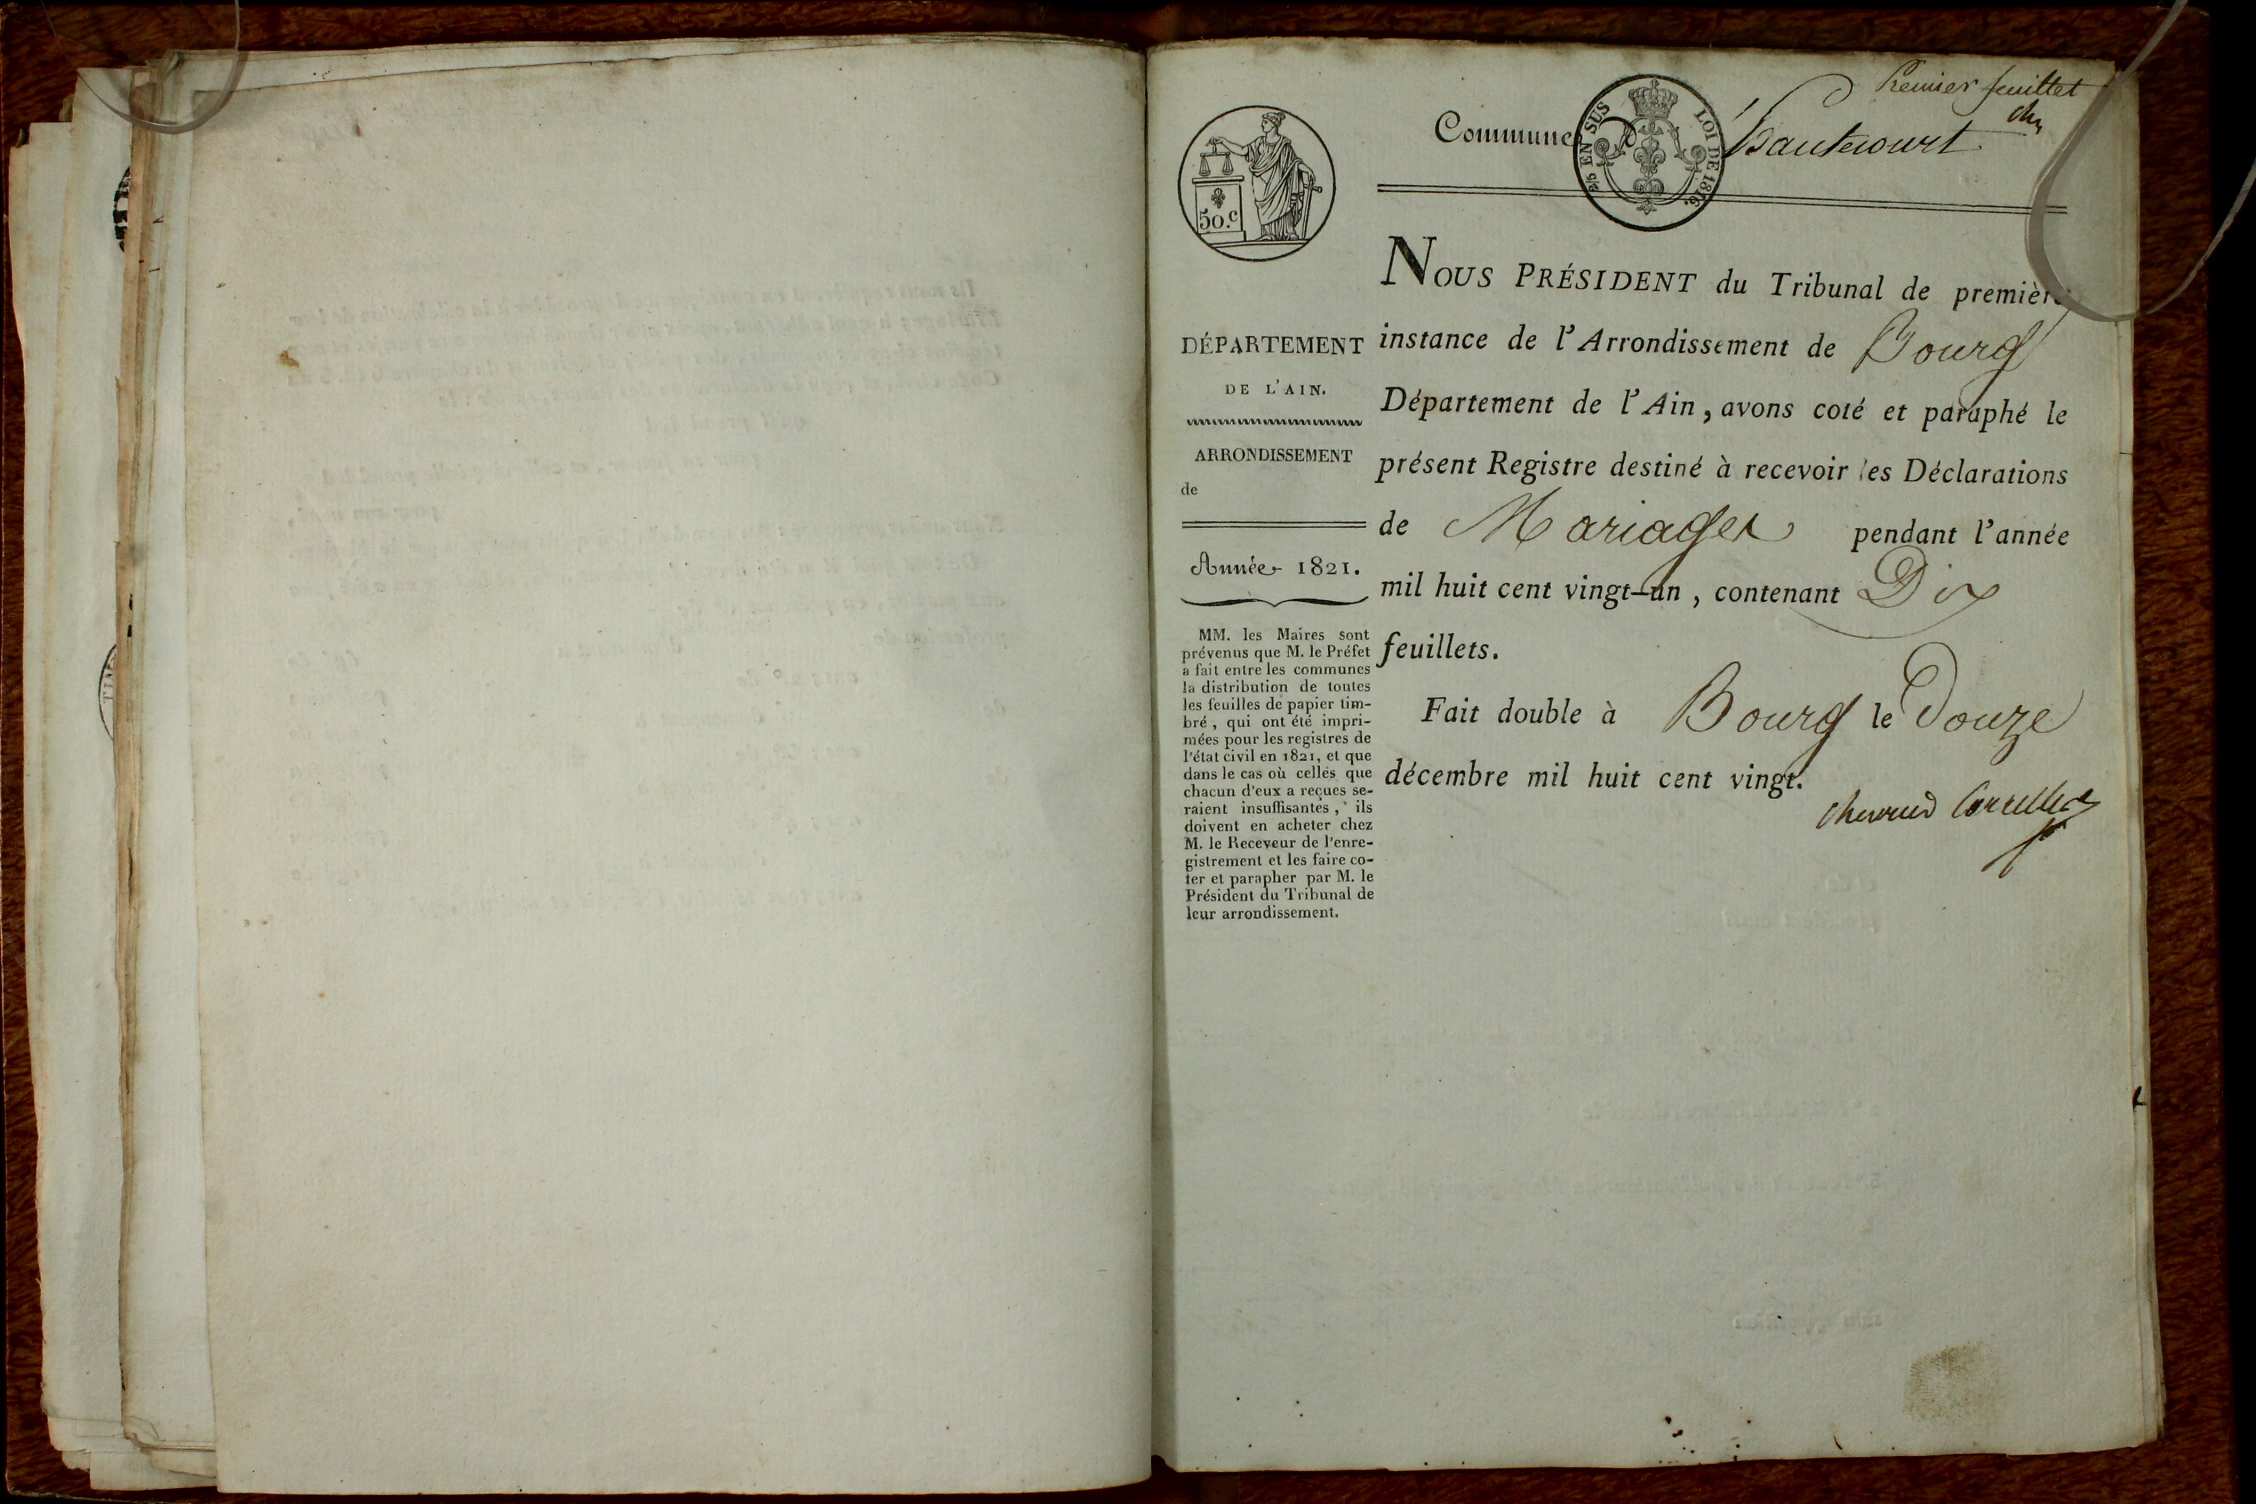 Premier feuillet
Commune d'hautecourt
2/5 EN SUS LOI DE 1816.
50.c
NOUS PRÉSIDENT du Tribunal de première
instance de l'Arrondissement de Bourg
Département de l'Ain, avons coté et paraphé le
présent Registre destiné à recevoir les Déclarations
de Mariages pendant l'année
mil huit cent vingt-un, contenant Dix
feuillets.
Fait double à Bourg le Douze
décembre mil huit cent vingt.
DÉPARTEMENT
DE L'AIN.
ARRONDISSEMENT
de
Année 1821.
MM. les Maires sont
prévenus que M. le Préfet
a fait entre les communes
la distribution de toutes
les feuilles de papier tim-
bré, qui ont été impri-
mées pour les registres de
l'état civil en 1821, et que
dans le cas où celles que
chacun d'eux a reçues se-
raient insuffisantes, ils
doivent en acheter chez
M. le Receveur de l'enre-
gistrement et les faire co-
ter et parapher par M. le
Président du Tribunal de
leur arrondissement.